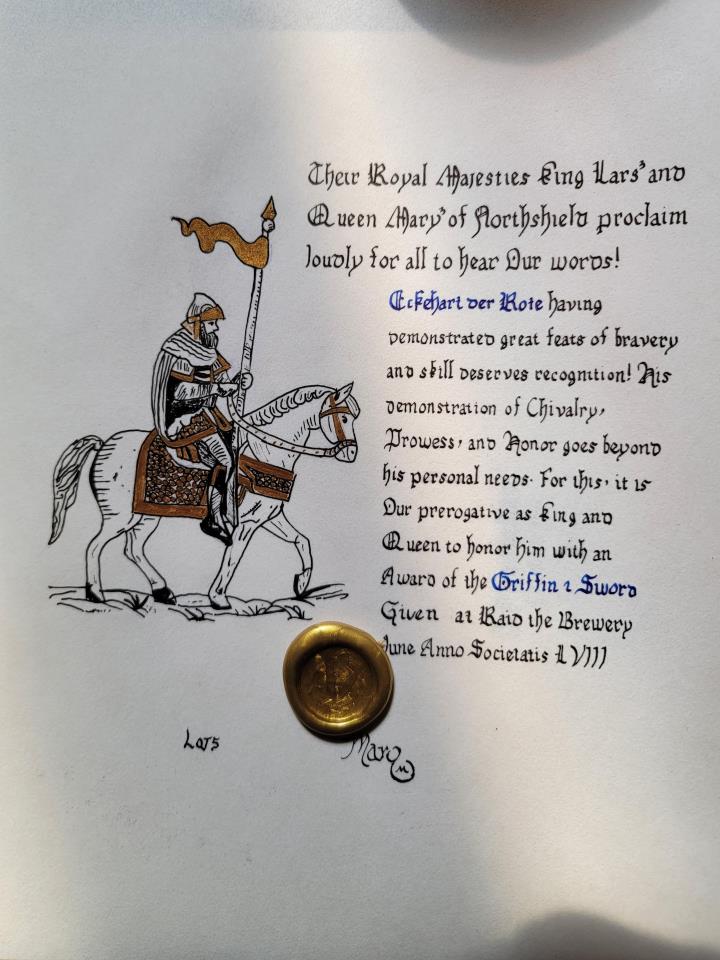 Their Royal Majesties King Lars³ and
Queen Mary³ of Northshield proclaim
loudly for all to hear Our words!
Eckehart der Rote having
demonstrated great feats of bravery
and skill deserves recognition! His
demonstration of Chivalry,
Prowess, and Honor goes beyond
his personal needs. For this, it is
Our prerogative as King and
Queen to honor him with an
Award of the Griffin & Sword
Given at Raid the Brewery
June Anno Societatis LVIII
Lars
Mary